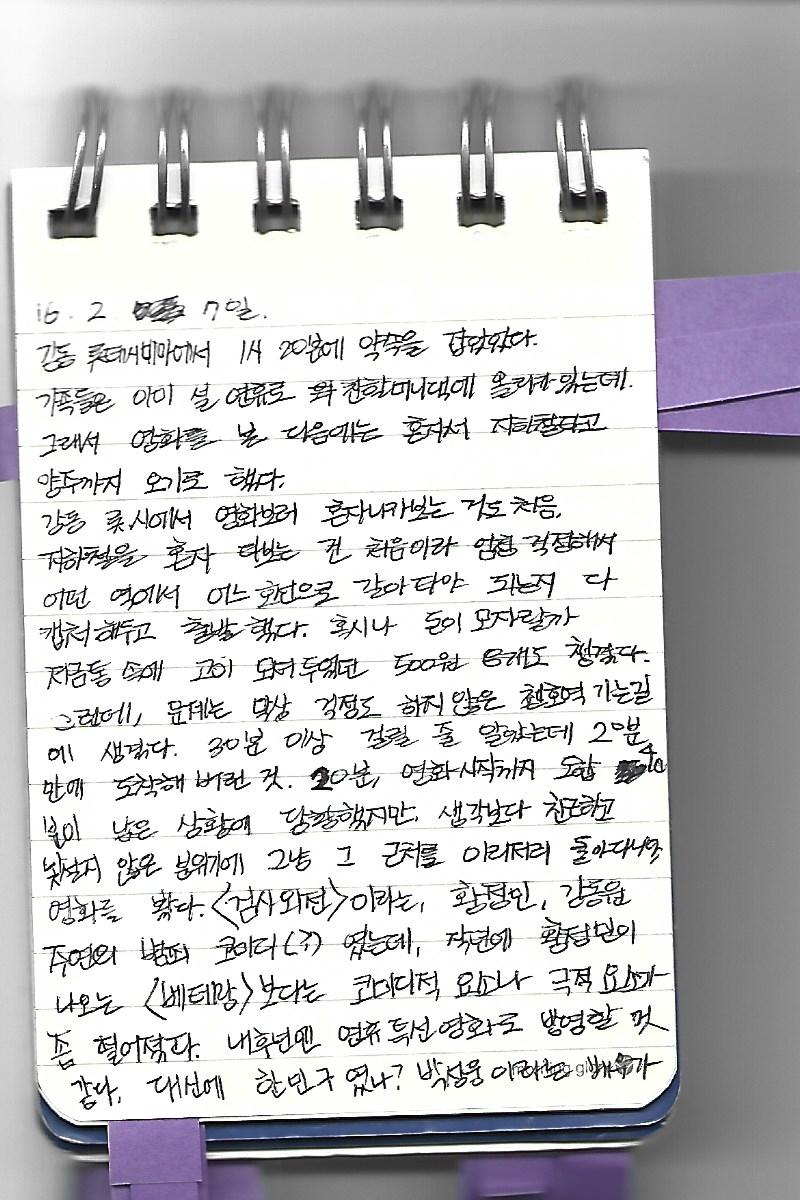 16. 2 7일.
강동 롯데시네마에서 1시 20분에 약속을 잡았었다.
가족들은 이미 설 연휴로 외친할머니댁에 올라가 있는데.
그래서 영화를 본 다음에는 혼자서 지하철타고
양주까지 오기로 했다.
강동 롯시에서 영화보러 혼자나가보는 거도 처음.
지하철을 혼자 타보는 건 처음이라 엄청 걱정해서
어떤 역에서 어느 호선으로 갈아타야 되는지 다
캡쳐해두고 출발했다. 혹시나 돈이 모자랄까
저금통 속에 고이 모셔두었던 500원 6개도 챙겼다.
그런데, 문제는 막상 걱정도 하지 않은 천호역 가는길
에 생겼다. 30분 이상 걸릴 줄 알았는데 20분
만에 도착해 버린 것. 20분, 영화시작까지 도합 40
분이 남은 상황에 당황했지만, 생각보다 친근하고
낯설지 않은 분위기에 그냥 그 근처를 이리저리 돌아다니다
영화를 봤다. <검사외전>이라는, 황정민, 강동원
주연의 범죄 코미디(?) 였는데, 작년에 황정민이
나오는 <베테랑>보다는 코미디적 요소나 극적 요소가
좀 떨어졌다. 내후년엔 연휴특선영화로 방영할 것
같다. 대신에 한민구였나? 박성웅이라는 배우가